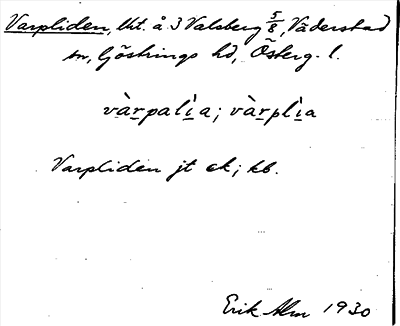 Varpliden, lht. å 3 Valsberg 5/8, Väderstad
sn, Göstrings hd, Österg. l.
vàrpalì̱a; vàrplì̱a
Varpliden jt ek; kb.
Erik Alm 1930